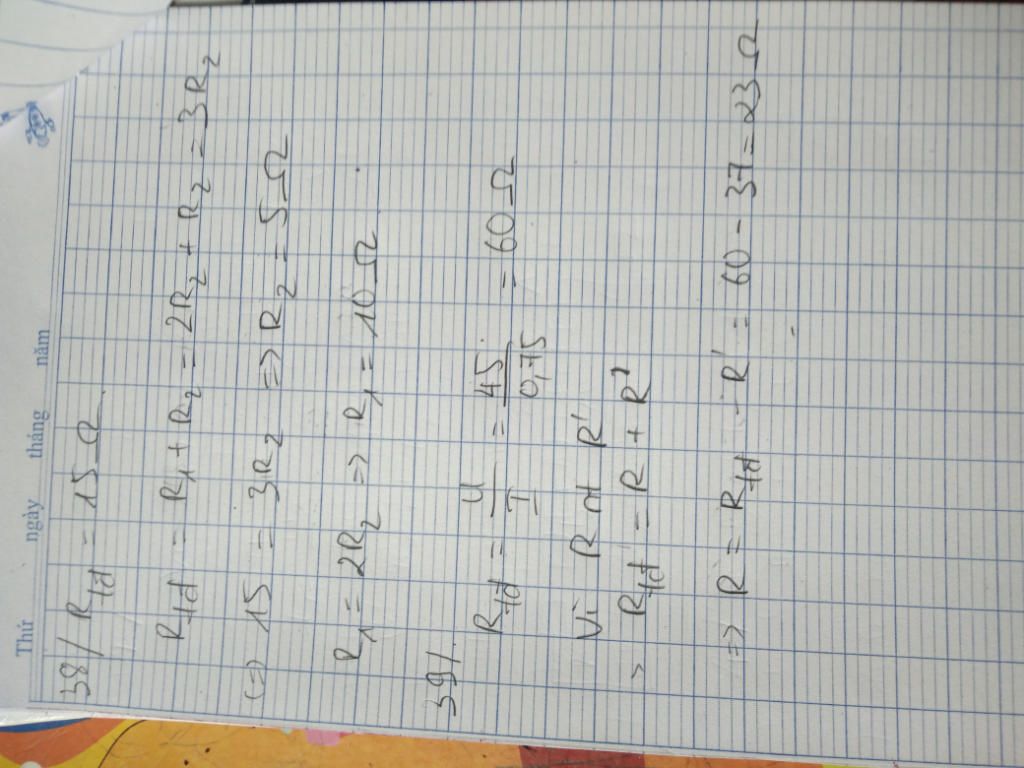 Thứ ngày tháng năm
38/ Rtđ = 15 Ω
Rtđ = R1 + R2 = 2R2 + R2 = 3R2
(=) 15 = 3R2 => R2 = 5 Ω
R1 = 2R2 => R1 = 10 Ω
39/.
Rtđ = U/I = 45/0,75 = 60 Ω
Vì R nt R'
> Rtđ = R + R'
=> R = Rtđ - R' = 60 - 37 = 23 Ω